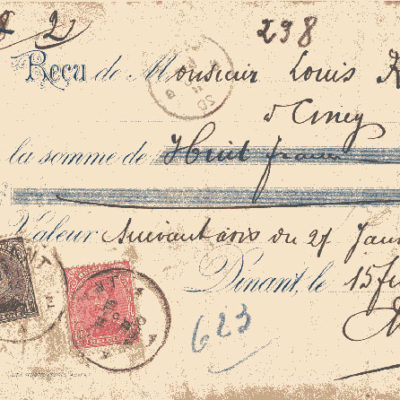 2 298
Reçu de Monsieur Louis
à Ciney
la somme de Huit francs
Valeur Suivant avis du 27 Janv
Dinant, le 15
623